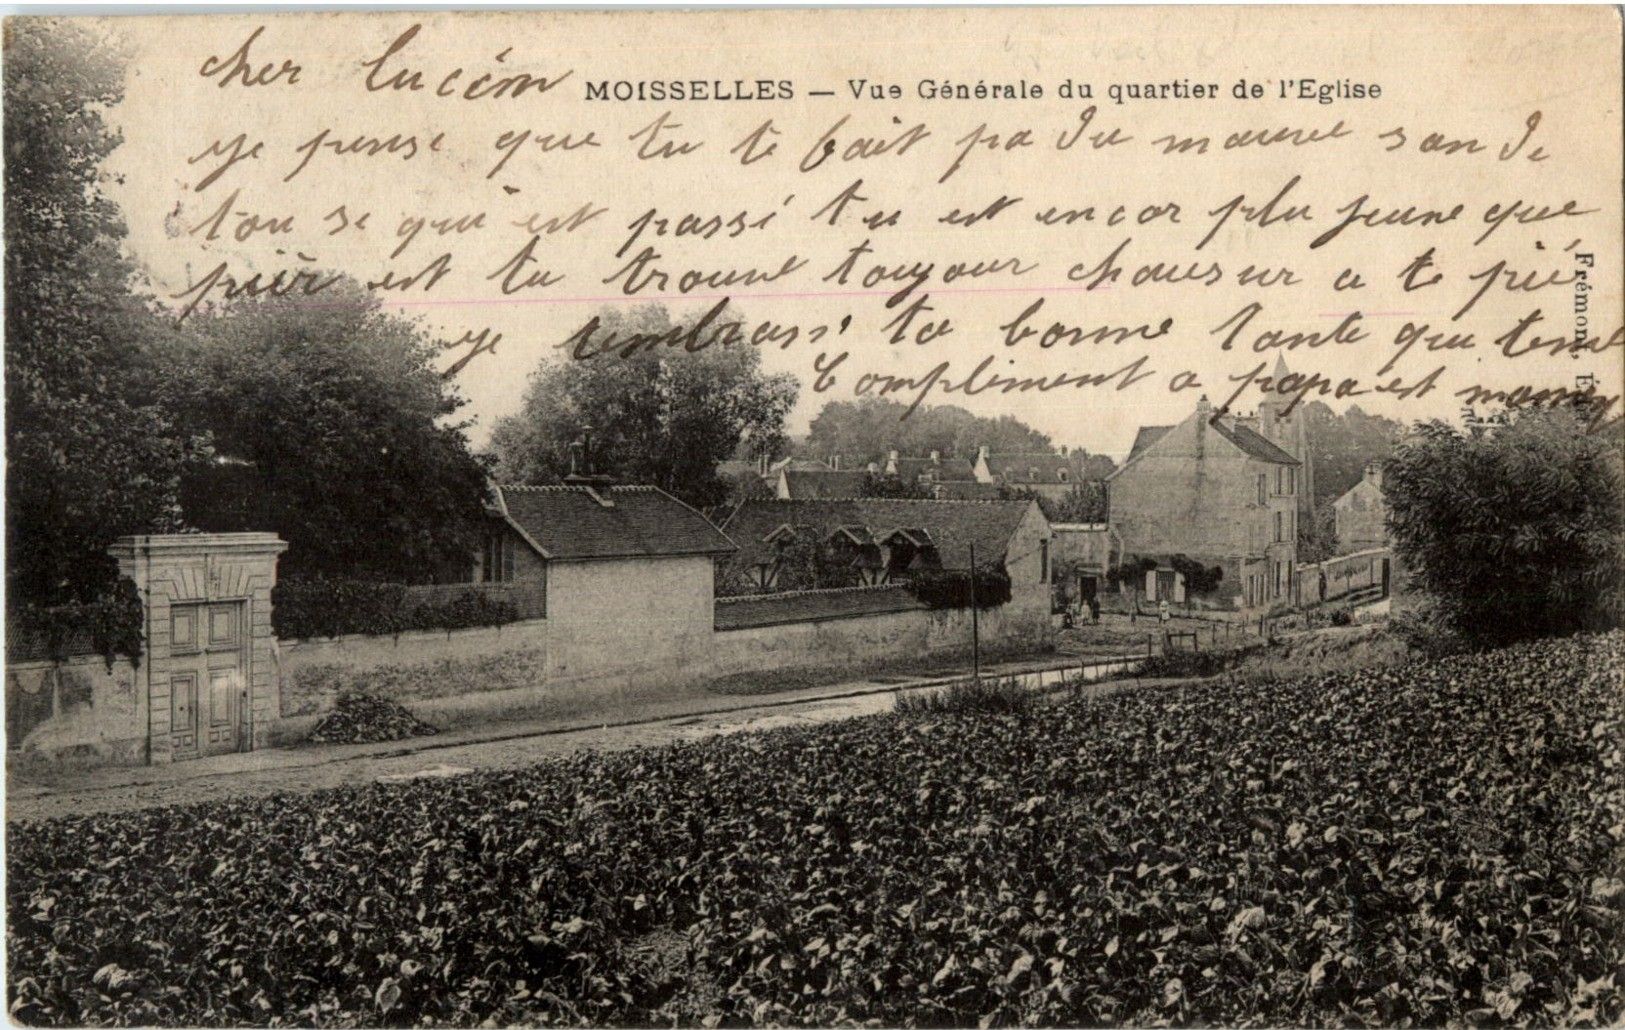 cher lucien
MOISSELLES — Vue Générale du quartier de l'Eglise
je pense que tu te fait pa du mauve san de
tou se qui est passé tu est encor plu jeune que
pier est tu trouve toujour chausur a te pié
je tembrass ta bonne tante qui
Compliment a papa et
Frémont, É